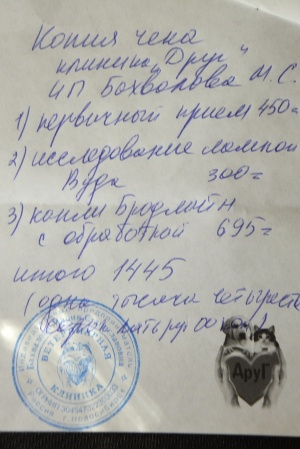 Копия чека
клиника "Друг"
ИП Бохволова М.С.
1) первичный прием 450=
2) исследование лампой
Вуда 300=
3) капли Бродлайн
с обработкой 695=
итого 1445
(одна тысяча четыреста
сорок пять руб 00 коп)
ВЕТЕРИНАРНАЯ
КЛИНИКА
ДруГ